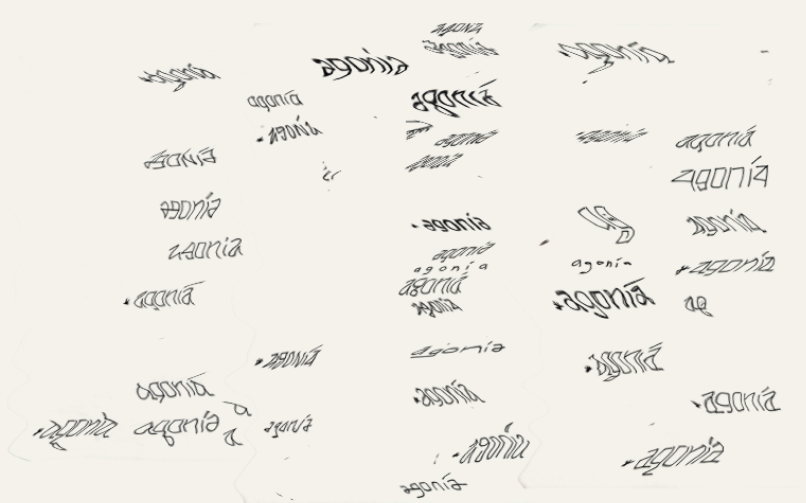 agonía
agonía
agonía
agonía
agonía
agonía
agonía
agonía
agonía
agonía
agonía
agonía
agonía
agonía
agonía
agonía
agonía
agonía
agonía
agonía
agonía
agonía
agonía
agonía
agonía
agonía
agonía
agonía
agonía
agonía
agonía
agonía
a
agonía
agonía
a
agonía
agonía
agonía